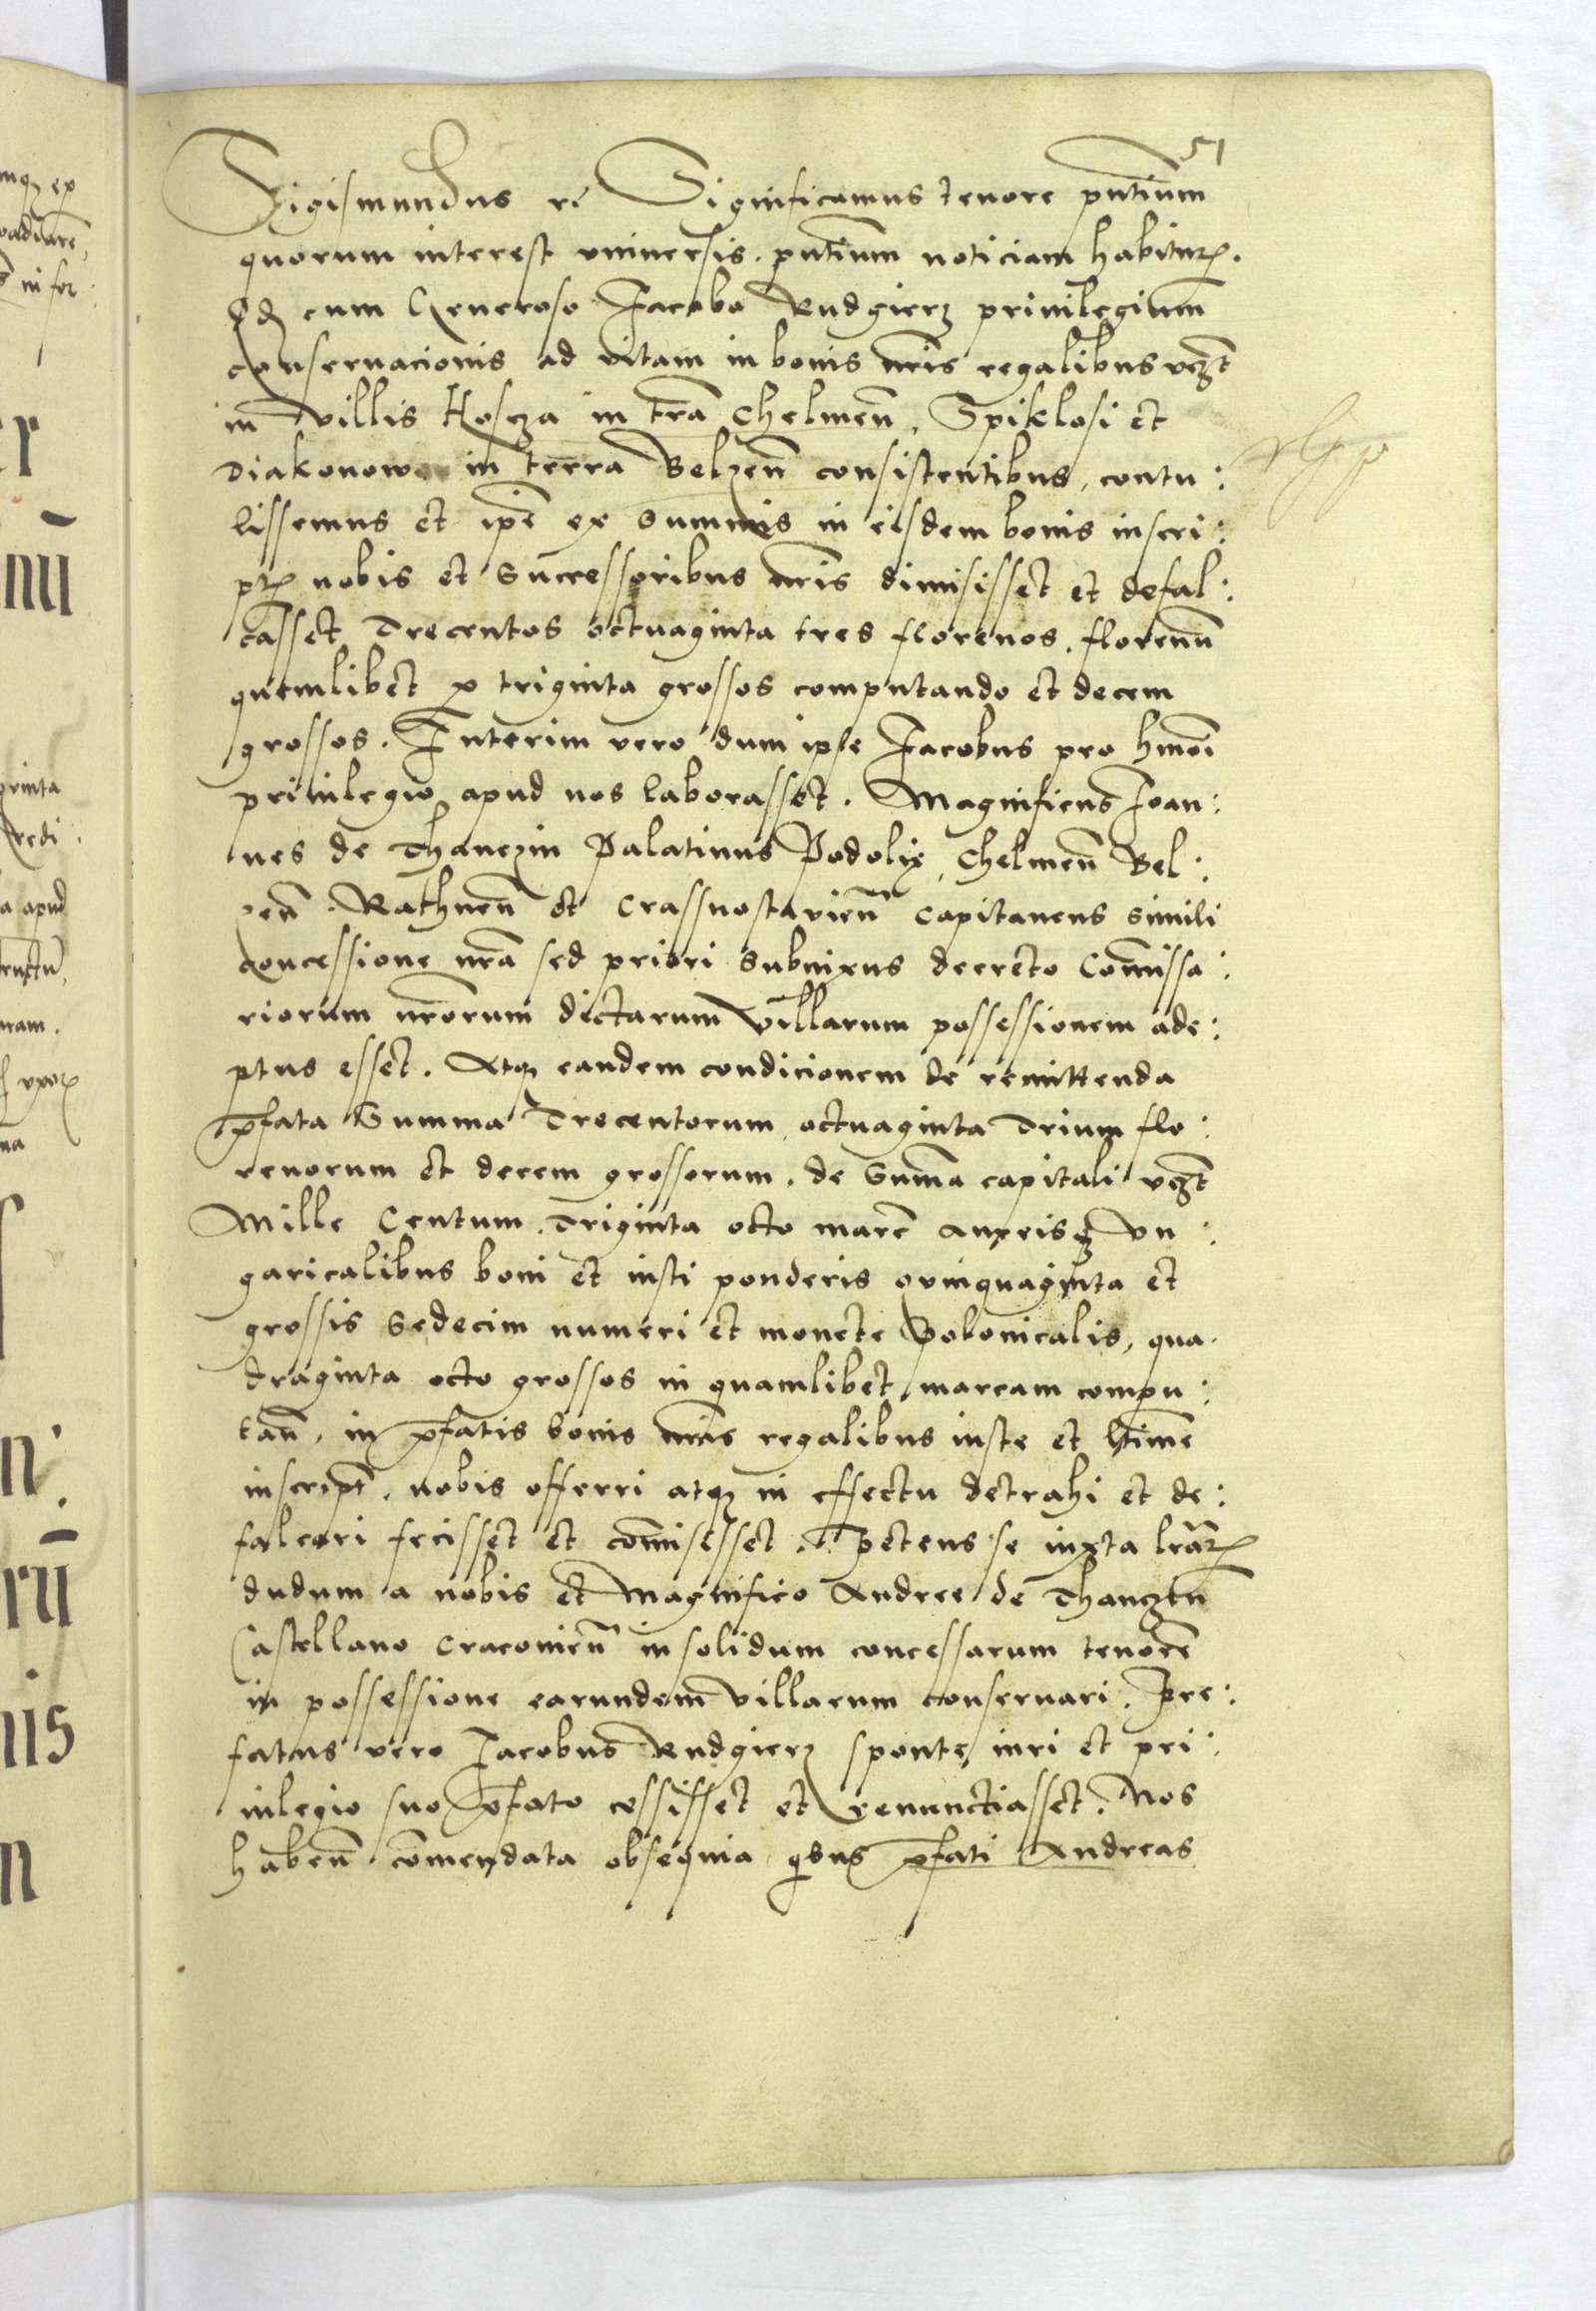 51
Sigismundus rc Significamus tenore pntium
quorum interest vniuersis. pntium noticiam habituris.
Qd cum Generoso Jacobo Rudgierz priuilegium
conseruacionis ad vitam in bonis nris regalibus vczt
in villis Hoscza in tra Chelmen, Spiklosi et
Diakonow in terra Belzen consistentibus, contu:
lissemus et ipe ex summis in eisdem bonis inscri:
ptis nobis et Successoribus nris dimisisset et defal:
casset Trecentos octuaginta tres florenos. florenu
quemlibet p triginta grossos computando et decem
grossos. Interim vero dum ipse Jacobus pro hmoi
priuilegio apud nos laborasset. Magnificus Joan:
nes de Thanczin Palatinus Podolie, Chelmen Bel:
zen. Rathnen et Crassnostauien Capitaneus simili
concessione nra sed priori subnixus decreto Comissa:
riorum nrorum dictarum villarum possessionem ade:
ptus esset. Atqz eandem condicionem de remittenda
pfata Summa Trecentorum octuaginta Trium flo:
renorum et decem grossorum. de Suma capitali vczt
Mille Centum Triginta octo marc aureis Vn:
garicalibus boni et iusti ponderis quinquaginta et
grossis Sedecim numeri et monete Polonicalis, qua
draginta octo grossos in quamlibet marcam compu:
tan, in pfatis bonis nris regalibus iuste et ltime
inscript. nobis offerri atqz in effectu detrahi et de:
falcari fecisset et comisisset. petens se iuxta lrar
dudum a nobis et Magnifico Andree de Thanczin
Castellano Cracouien in solidum concessarum tenore
in possessione earundem villarum conseruari. Pre:
fatus vero Jacobus Rudgierz sponte iuri et pri:
uilegio suo pfato cessisset et renunctiasset. Nos
haben comendata obsequia qbus pfati Andreas